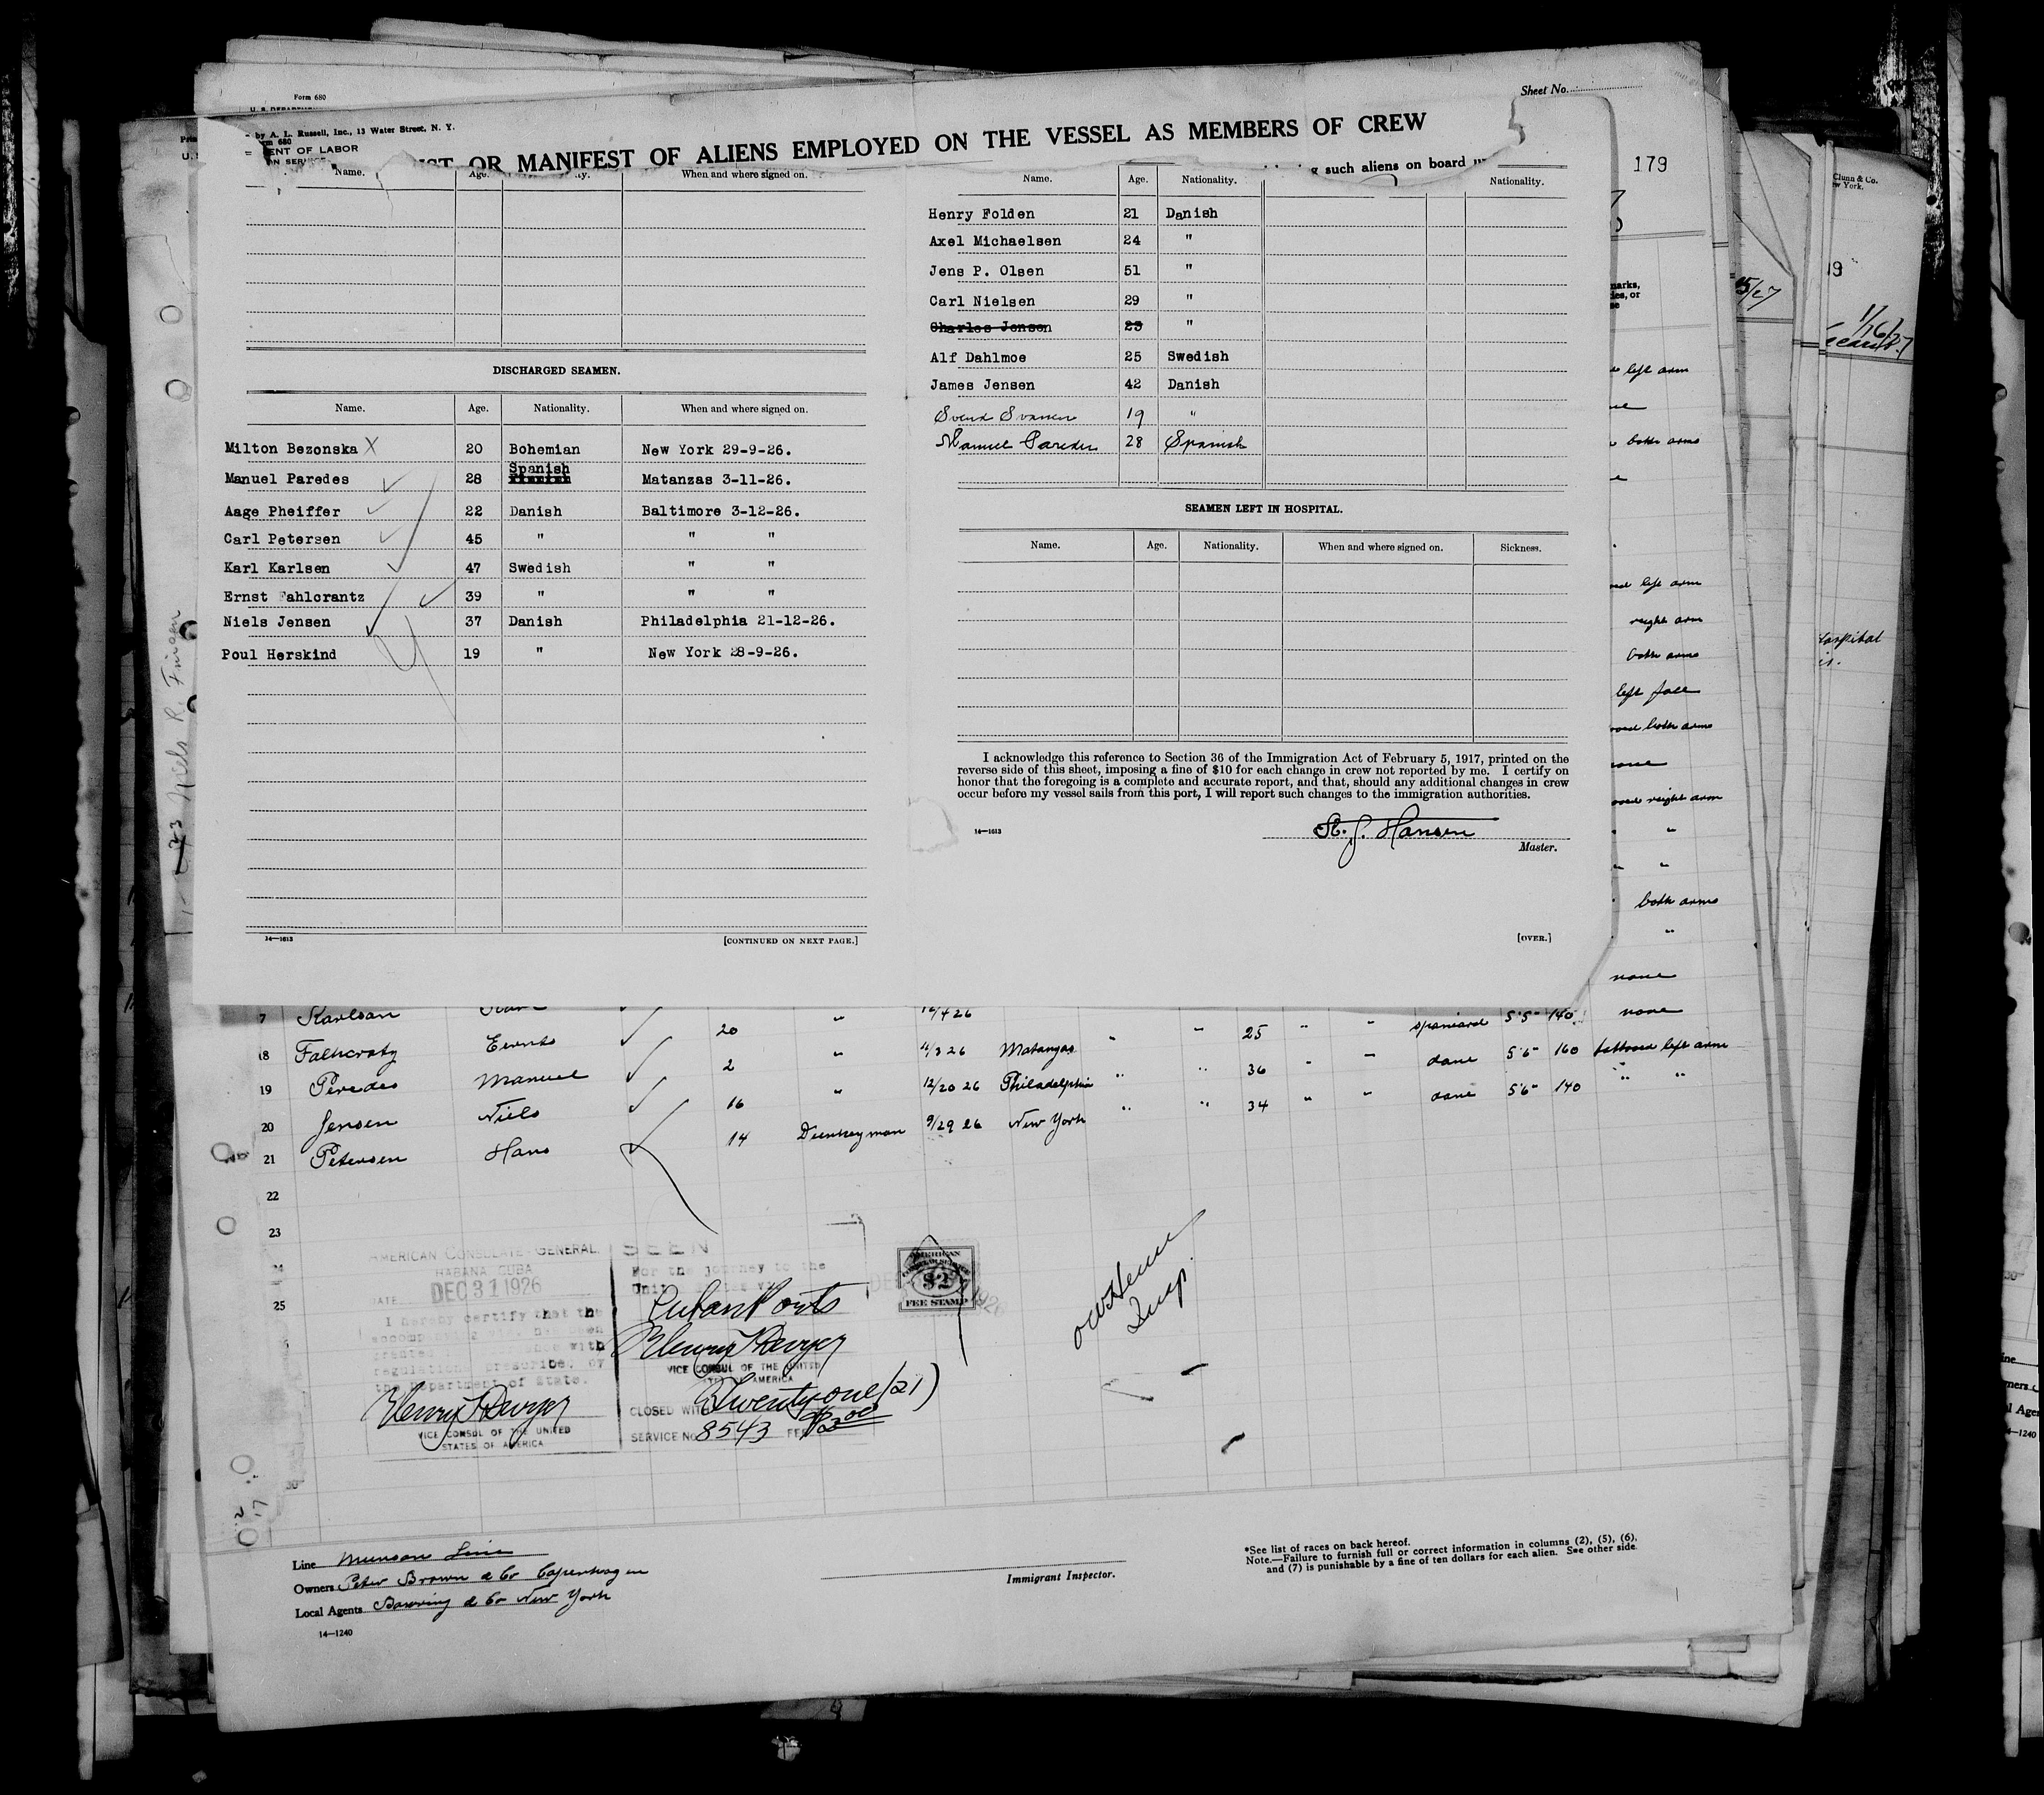 Form 680
Sheet No.
by A. L. Russell, Inc., 13 Water Street, N. Y.
ENT OF LABOR
OR MANIFEST OF ALIENS EMPLOYED ON THE VESSEL AS MEMBERS OF CREW
such aliens on board
179
Name. Age. When and where signed on.
DISCHARGED SEAMEN.
Name. Age. Nationality. When and where signed on.
Milton Bezonska X 20 Bohemian New York 29-9-26.
Spanish
Manuel Paredes 28 Matanzas 3-11-26.
Aage Pheiffer 22 Danish Baltimore 3-12-26.
Carl Petersen 45 " " "
Karl Karlsen 47 Swedish " "
Ernst Fahlcrantz 39 " " "
Niels Jensen 37 Danish Philadelphia 21-12-26.
Poul Herskind 19 " New York 28-9-26.
14—1613 [CONTINUED ON NEXT PAGE.]
Name. Age. Nationality. Nationality.
Henry Folden 21 Danish
Axel Michaelsen 24 "
Jens P. Olsen 51 "
Carl Nielsen 29 "
Charles Jensen 23 "
Alf Dahlmoe 25 Swedish
James Jensen 42 Danish
Svend 19 "
Manuel Paredes 28 Spanish
SEAMEN LEFT IN HOSPITAL.
Name. Age. Nationality. When and where signed on. Sickness.
I acknowledge this reference to Section 36 of the Immigration Act of February 5, 1917, printed on the
reverse side of this sheet, imposing a fine of $10 for each change in crew not reported by me. I certify on
honor that the foregoing is a complete and accurate report, and that, should any additional changes in crew
occur before my vessel sails from this port, I will report such changes to the immigration authorities.
14—1613
Hansen
Master.
[OVER.]
left arm
both arms
left arm
right arm
both arms
left
both arms
none
right arm
"
"
both arms
"
none
7 Karlsan 12/4 26 spaniard 5'5" 140 none
18 Falhcratz Ernts 20 " 25 " " dane 5'6" 160 tattooed left arm
19 Peredes Manuel 2 " 11/3 26 Matanzas " " 36 " " dane 5'6" 140 " "
20 Jensen Niels 16 " 12/20 26 Philadelphia " " 34 " "
21 Petersen Hans 14 Dunkeyman 9/29 26 New York
22
23
24
25
30
AMERICAN CONSULATE GENERAL
HABANA CUBA
DATE DEC 31 1926
I hereby certify that the
regulations prescribe by
the Department of State.
VICE CONSUL OF THE UNITED
STATES OF AMERICA
SEEN
For the journey to the
Cuban Ports
VICE CONSUL OF THE UNITED
STATES OF AMERICA
CLOSED WITH Twentyone (21)
SERVICE No 8543 FEE $2.00
AMERICAN
$2
FEE STAMP
Insp.
Line Munson Line
Owners Peter Brown & Co Copenhagen
Local Agents Bowring & Co New York
14—1240
Immigrant Inspector.
*See list of races on back hereof.
Note.—Failure to furnish full or correct information in columns (2), (5), (6),
and (7) is punishable by a fine of ten dollars for each alien. See other side